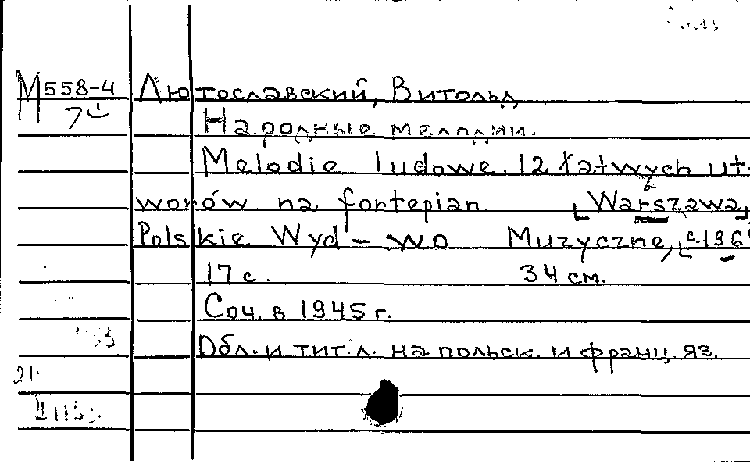 М558-4 Лютославский, Витольд
7
Народные мелодии.
Melodie ludowe. 12 łatwych ut-
worów na fortepian [Warszawa,
Polskie Wyd-wo Muzyczne,
17 с. 34 см.
Соч. в 1945 г.
Обл. и тит. л. на польск. и франц. яз.
21